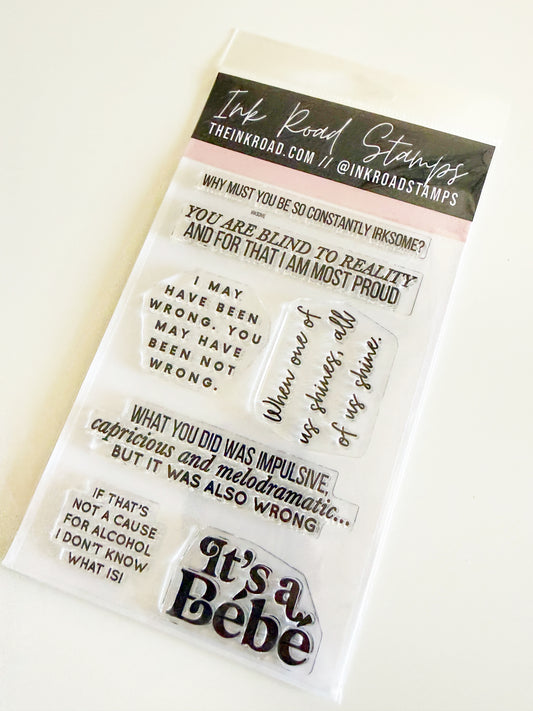 Ink Road Stamps
THEINKROAD.COM // @INKROADSTAMPS
WHY MUST YOU BE SO CONSTANTLY IRKSOME?
YOU ARE BLIND TO REALITY
AND FOR THAT I AM MOST PROUD
I MAY
HAVE BEEN
WRONG. YOU
MAY HAVE
BEEN NOT
WRONG.
When one of
us shines, all
of us shine.
WHAT YOU DID WAS IMPULSIVE,
capricious and melodramatic...
BUT IT WAS ALSO WRONG
IF THAT'S
NOT A CAUSE
FOR ALCOHOL
I DON'T KNOW
WHAT IS!
It's a
Bébé